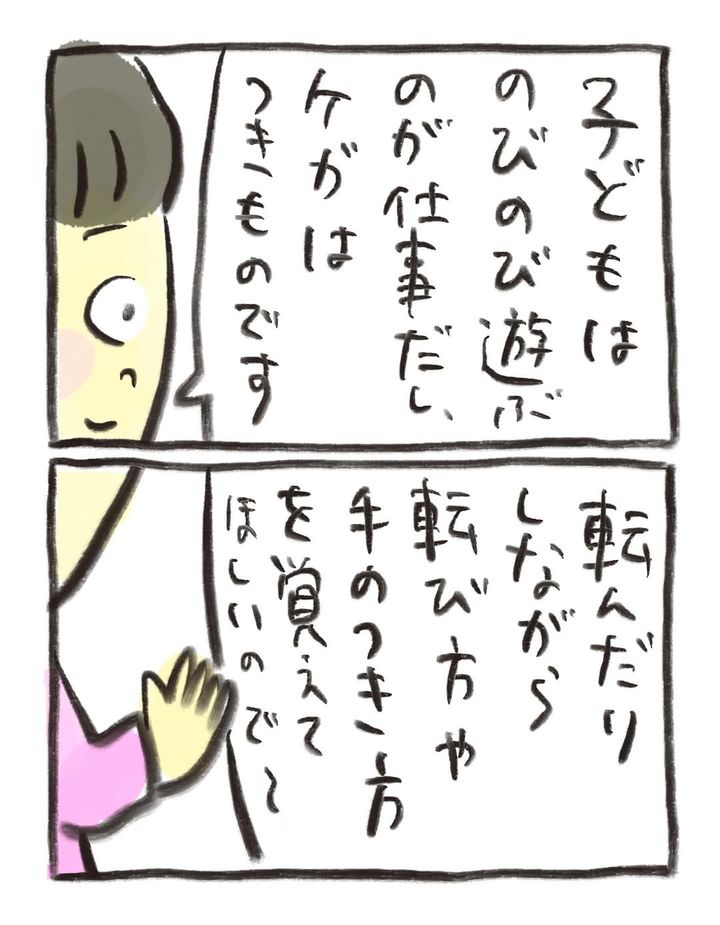 子どもは
のびのび遊ぶ
のが仕事だし、
ケガは
つきものです
転んだり
しながら
転び方や
手のつき方
を覚えて
ほしいので〜